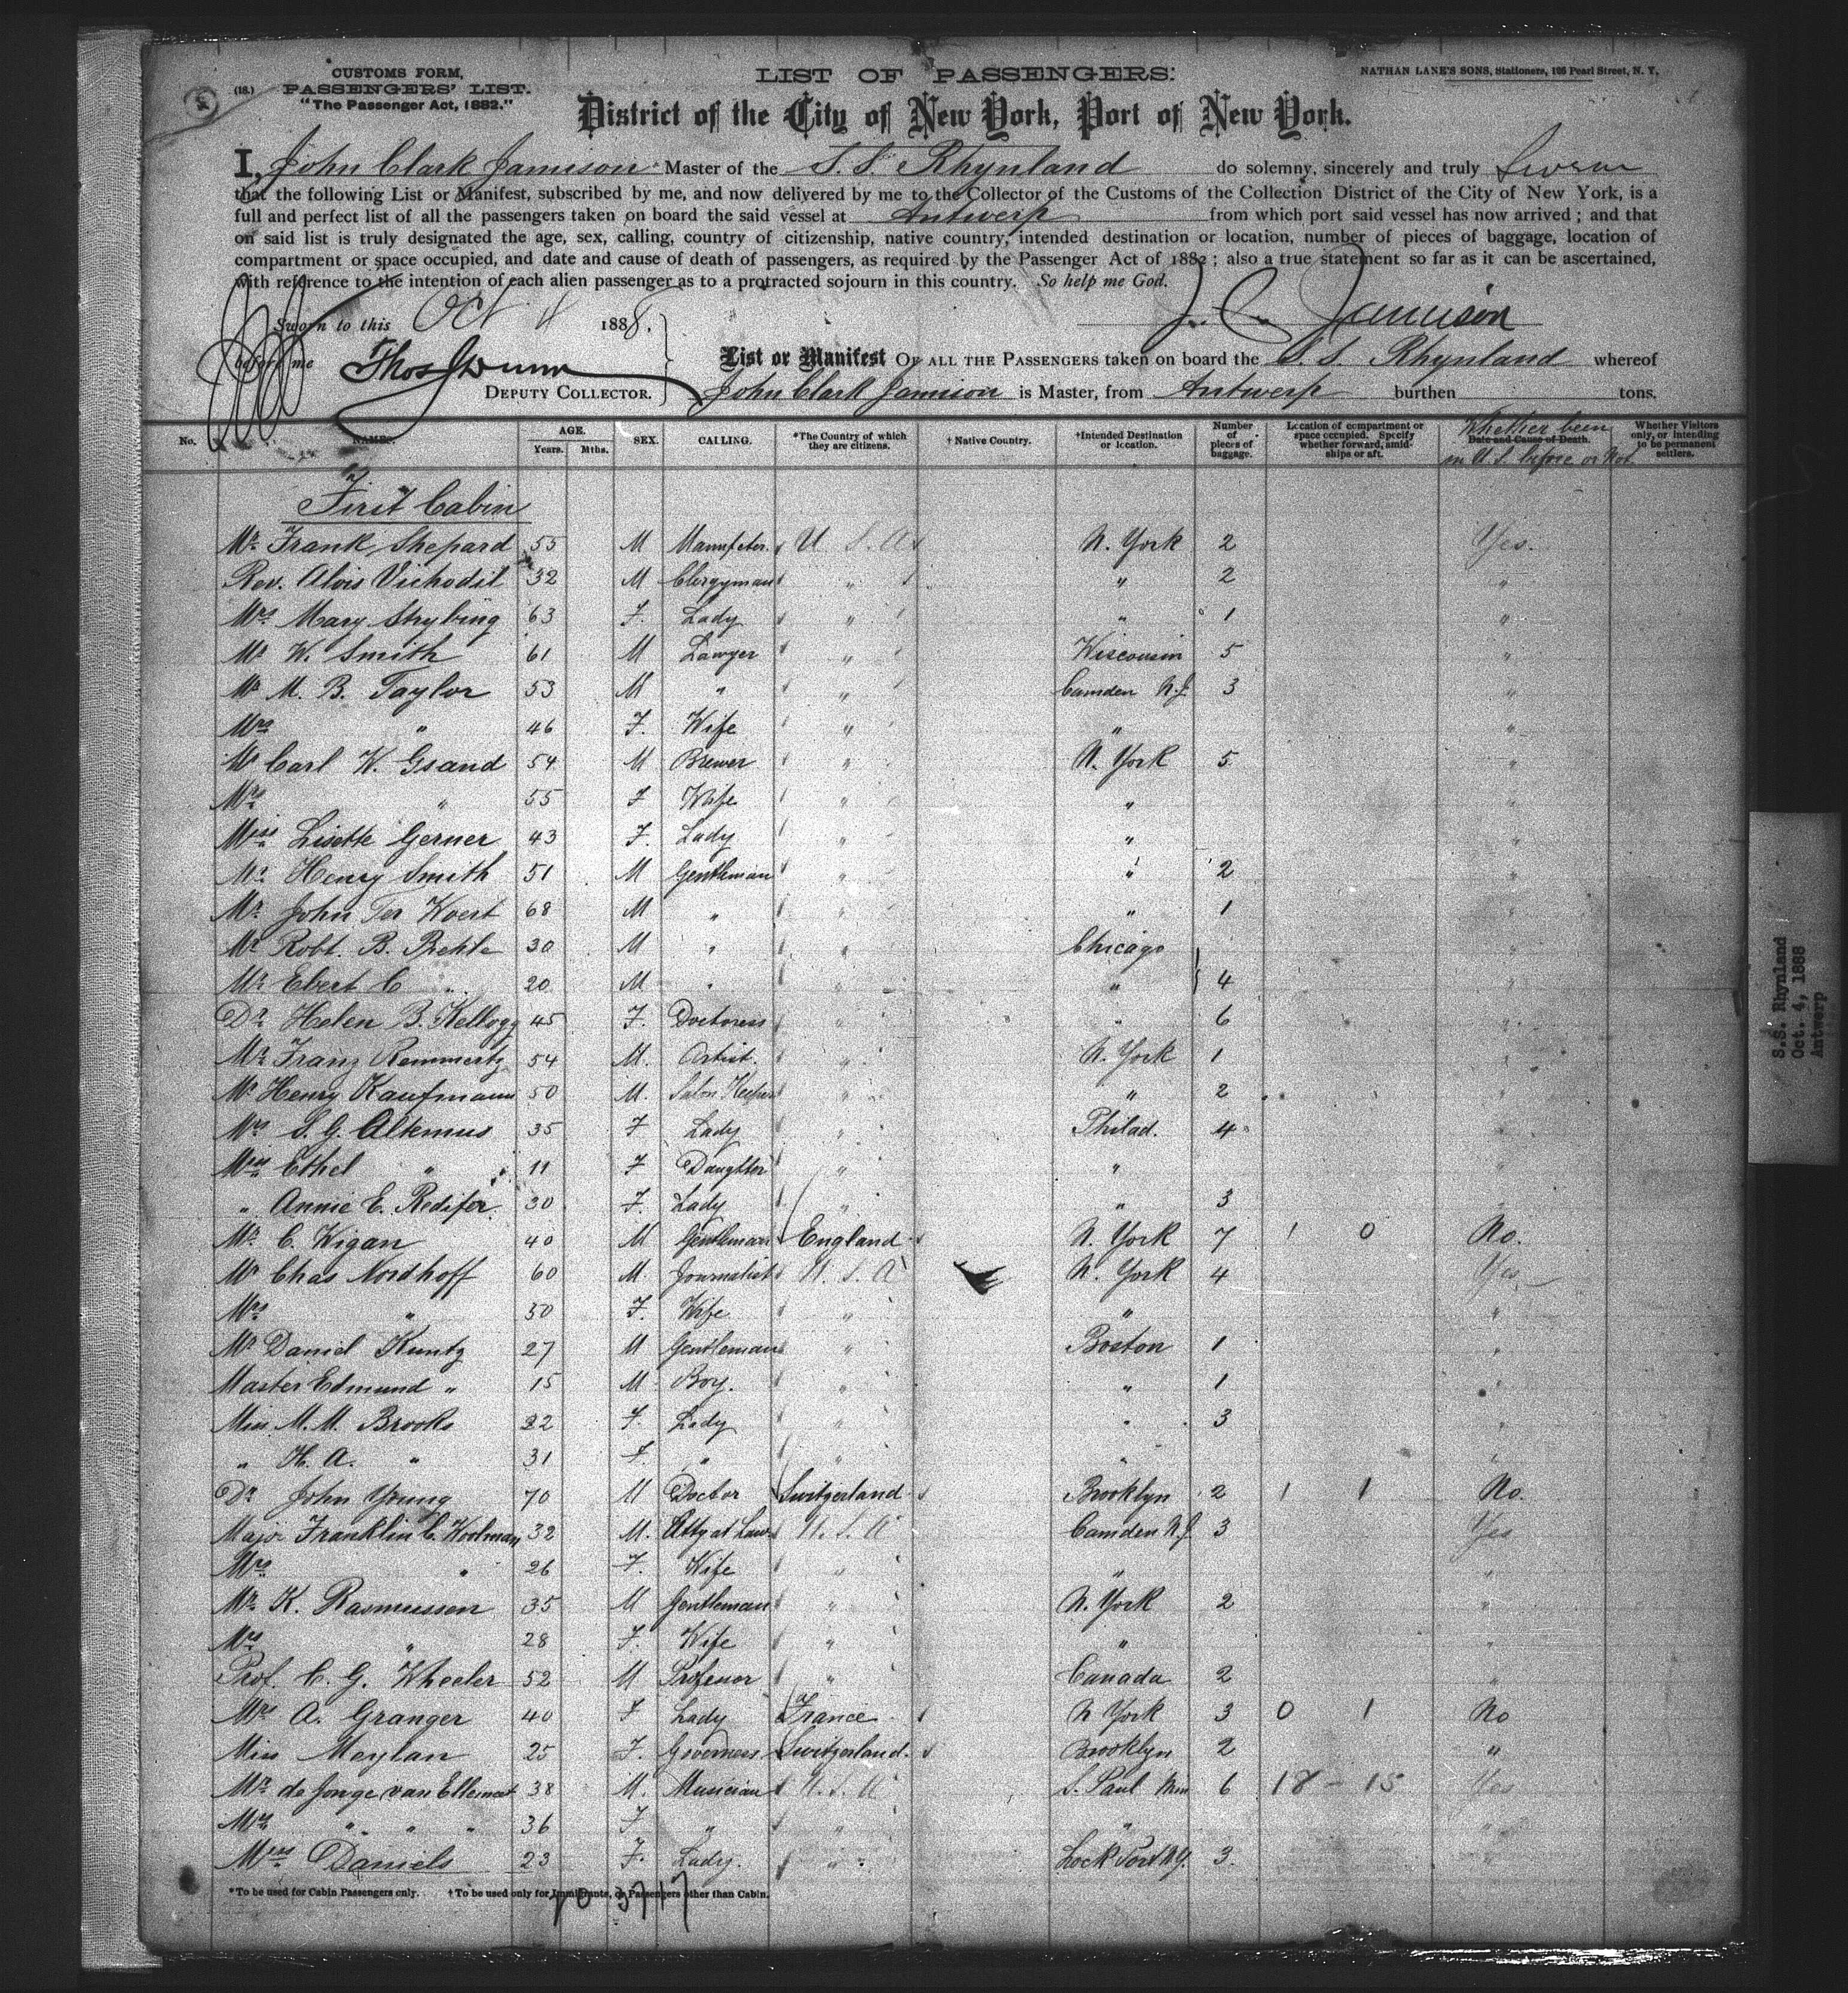 CUSTOMS FORM,
(18.) PASSENGERS' LIST.
"The Passenger Act, 1882."
LIST OF PASSENGERS:
NATHAN LANE'S SONS, Stationers, 126 Pearl Street, N. Y.
District of the City of New York, Port of New York.
I, John Clark Jamison Master of the S. S. Rhynland do solemny, sincerely and truly Swear
that the following List or Manifest, subscribed by me, and now delivered by me to the Collector of the Customs of the Collection District of the City of New York, is a
full and perfect list of all the passengers taken on board the said vessel at Antwerp from which port said vessel has now arrived ; and that
on said list is truly designated the age, sex, calling, country of citizenship, native country, intended destination or location, number of pieces of baggage, location of
compartment or space occupied, and date and cause of death of passengers, as required by the Passenger Act of 1882 ; also a true statement so far as it can be ascertained,
with reference to the intention of each alien passenger as to a protracted sojourn in this country. So help me God.
Sworn to this Oct 4 1888.
J. C. Jamison
before me
DEPUTY COLLECTOR.
List or Manifest OF ALL THE PASSENGERS taken on board the S. S. Rhynland whereof
John Clark Jamison is Master, from Antwerp burthen tons.
No. NAMES. AGE. Years. Mths. SEX. CALLING. *The Country of which they are citizens. † Native Country. †Intended Destination or location. Number of pieces of baggage. Location of compartment or space occupied. Specify whether forward, amidships or aft. Date and Cause of Death. Whether been in U.S. before or Not. Whether Visitors only, or intending to be permanent settlers.
First Cabin
Mr Frank Shepard 55 M Manufctr. U S. A N. York 2 Yes.
Rev. Alois Vichodil 32 M Clergyman " " 2 "
Mrs Mary Strybing 63 F. Lady " " 1 "
Mr W. Smith 61 M Lawyer " Wisconsin 5 "
Mr M. B. Taylor 53 M " " Camden N.J. 3 "
Mrs " 46 F. Wife " " "
Mr Carl W. Gsand 54 M Brewer " N. York 5 "
Mrs " 55 F Wife " " "
Miss Lisette Gerner 43 F. Lady " " "
Mr Henry Smith 51 M Gentleman " " 2 "
Mr John Ter Kuert 68 M " " " 1 "
Mr Robt. B. Prehle 30 M " " Chicago "
Mr Ebert C " 20 M " " " 4 "
Dr Helen B. Kellogg 45 F. Doctoress " " 6 "
Mr Franz Remmertz 54 M. Artist. " N. York 1 "
Mr Henry Kaufmann 50 M. Salon Keeper " " 2 "
Mrs S. G. Altemus 35 F Lady " Philad. 4 "
Miss Ethel " 11 F Daughter " " "
" Annie E. Redifer 30 F. Lady " " 3 "
Mr C. Wigan 40 M Gentleman England N. York 7 1 0 No.
Mr Chas Nordhoff 60 M. Journalist U. S. A N. York 4 Yes
Mrs " 50 F. Wife " " "
Mr Daniel Kuntz 27 M Gentleman " Boston 1 "
Master Edmund " 15 M Boy. " " 1 "
Miss M. M. Brooks 32 F. Lady " " 3 "
" H. A. " 31 F. " " " "
Dr John Young 70 M Doctor Switzerland Brooklyn 2 1 1 No.
Major Franklin C. Woolman 32 M. Atty at Law U. S. A Camden N.J. 3 Yes
Mrs " 26 F. Wife " " "
Mr K. Rasmussen 35 M Gentleman " N. York 2 "
Mrs " 28 F. Wife " " "
Prof. C. G. Wheeler 52 M Professor " Canada 2 "
Mrs A. Granger 40 F Lady France N York 3 0 1 No
Miss Meylan 25 F. Governess Switzerland. Brooklyn 2 "
Mr de Jonge van Ellemeet 38 M. Musician U. S. A S. Paul Min 6 18 - 15 Yes
Mrs " " " 36 F " " " "
Mrs Daniels 23 F. Lady. " Lock Port N.Y. 3 "
*To be used for Cabin Passengers only. †To be used only for Immigrants, or Passengers other than Cabin.
20 37 17
S.S. Rhynland
Oct. 4, 1888
Antwerp